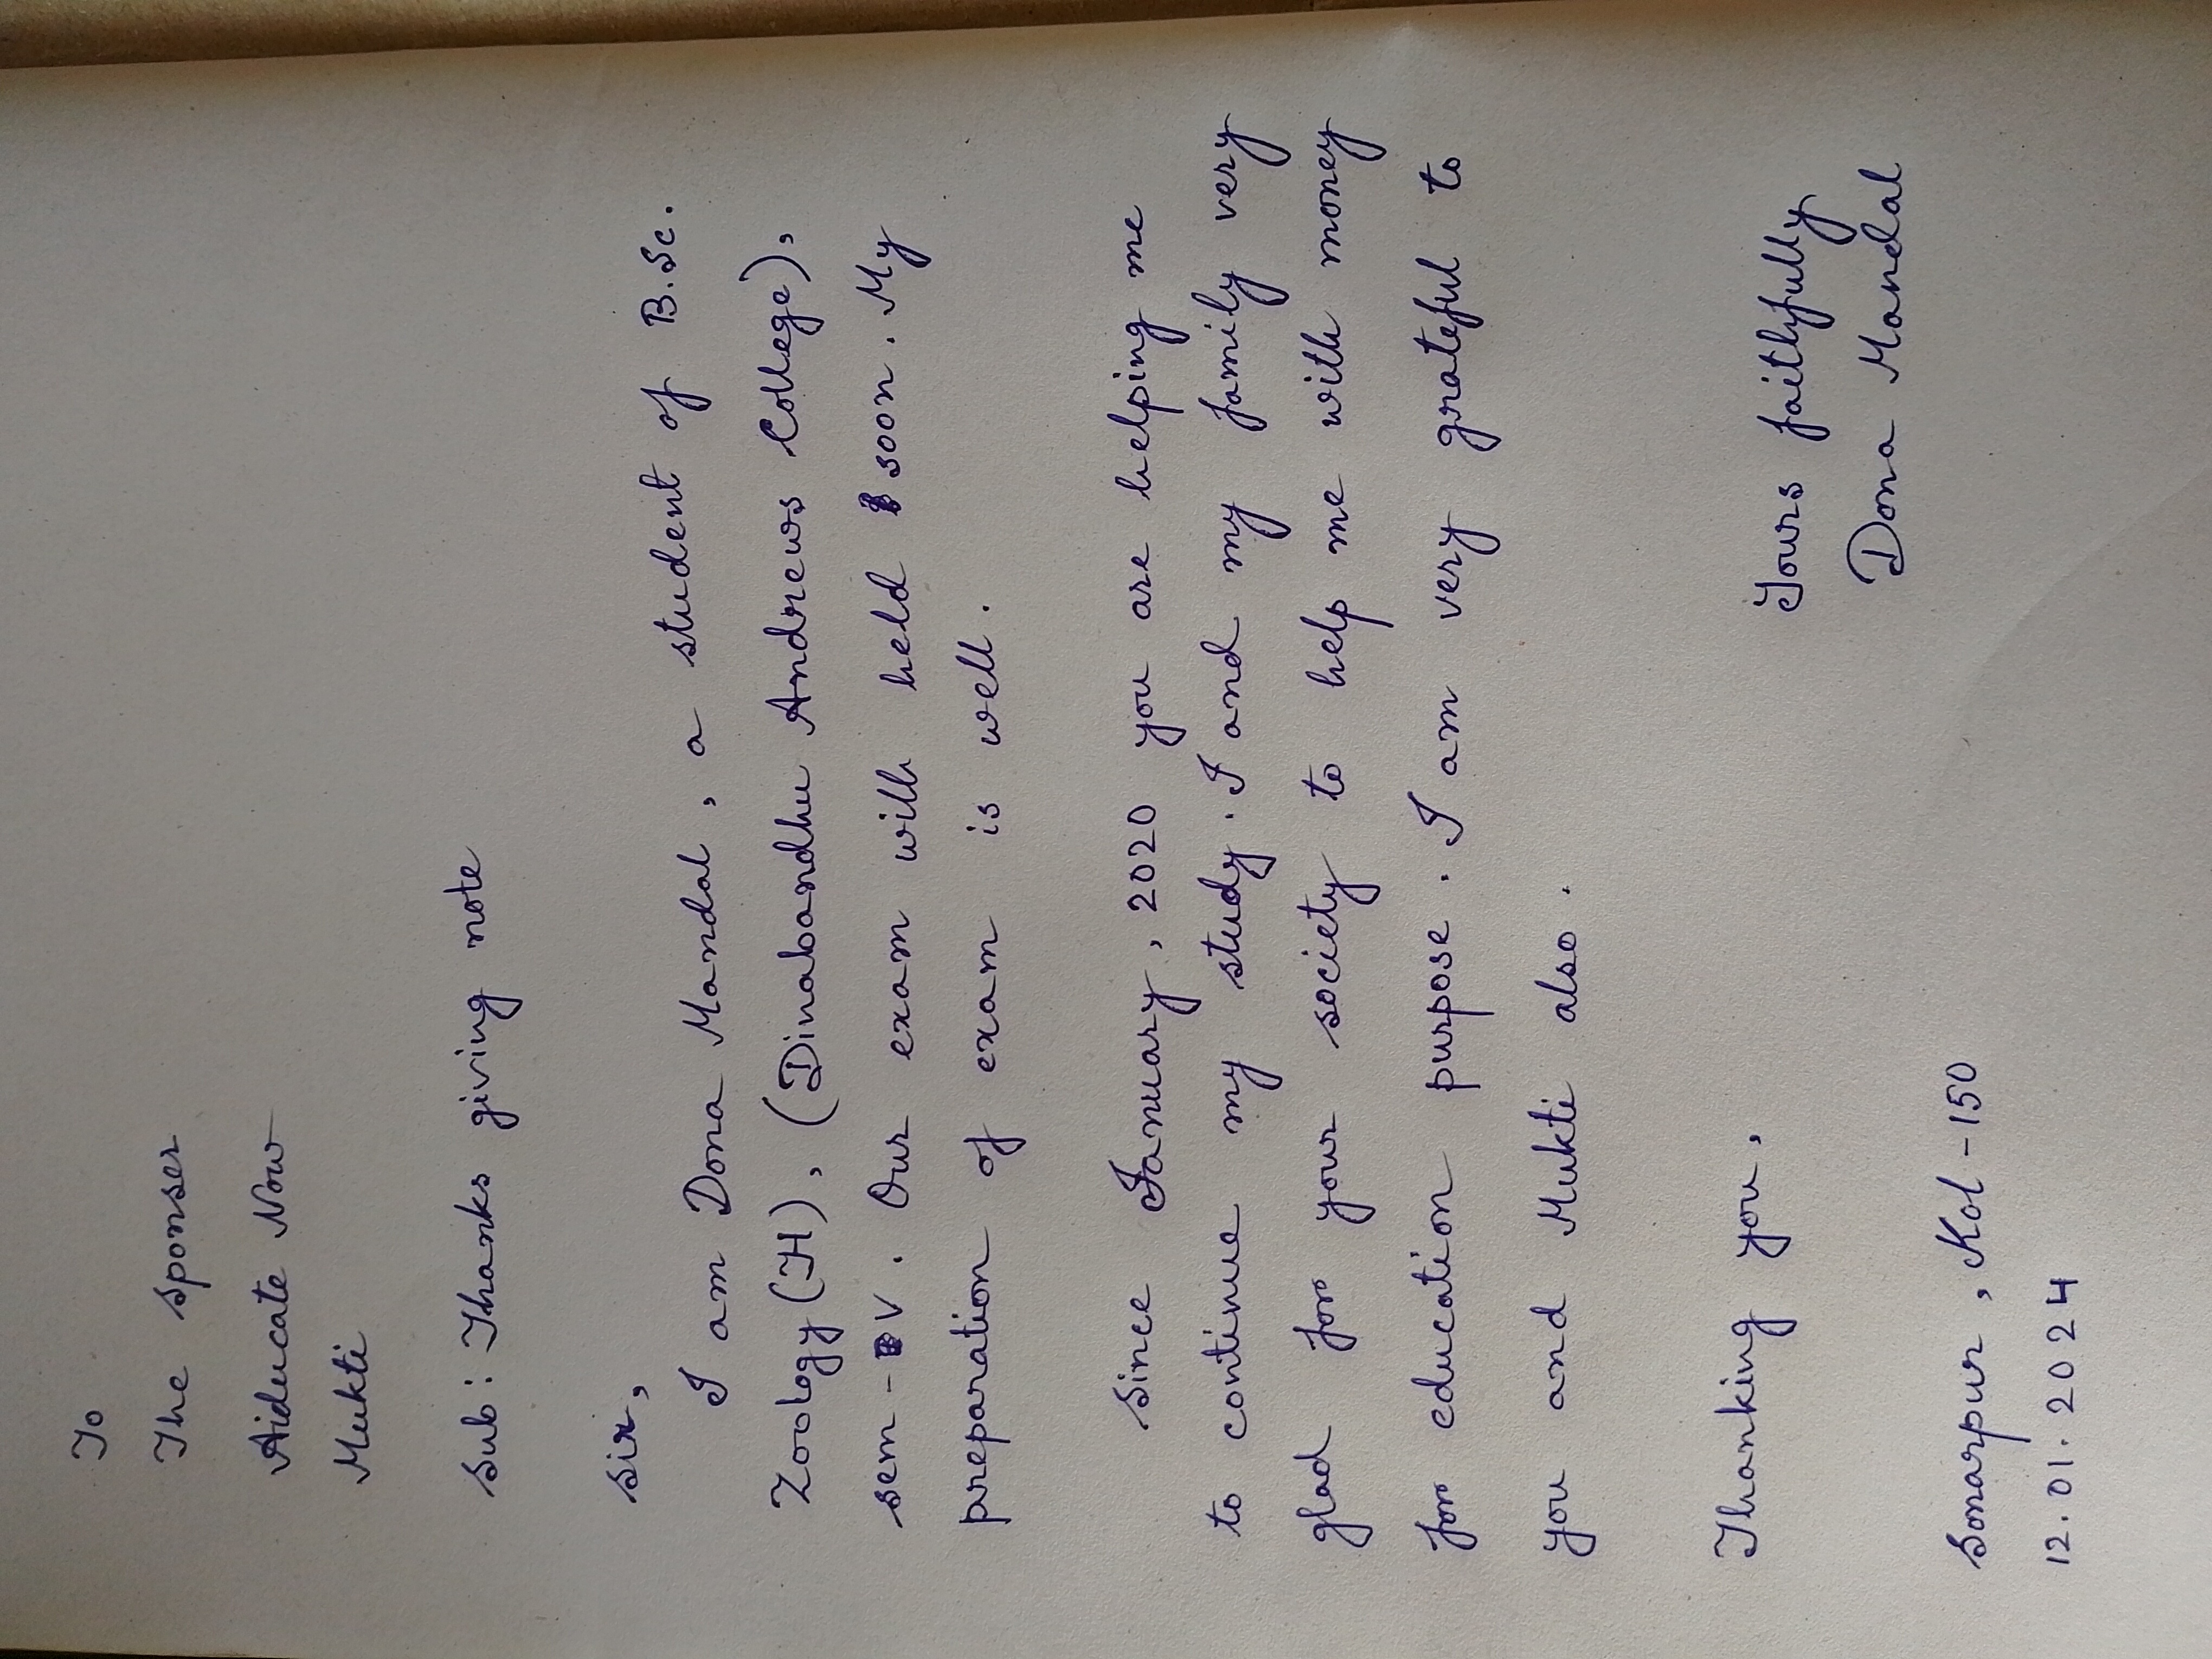 To
The sponser
Aiducate Now
Mukti
Sub: Thanks giving note
Sir,
I am Dona Mandal, a student of B.Sc.
Zoology (H), (Dinabandhu Andrews College),
sem - V. Our exam will held soon. My
preparation of exam is well.
Since January, 2020 you are helping me
to continue my study. I and my family very
glad for your society to help me with money
for education purpose. I am very grateful to
you and Mukti also.
Thanking you,
Yours faithyfully
Dona Mandal
Sonarpur, Kol-150
12.01.2024